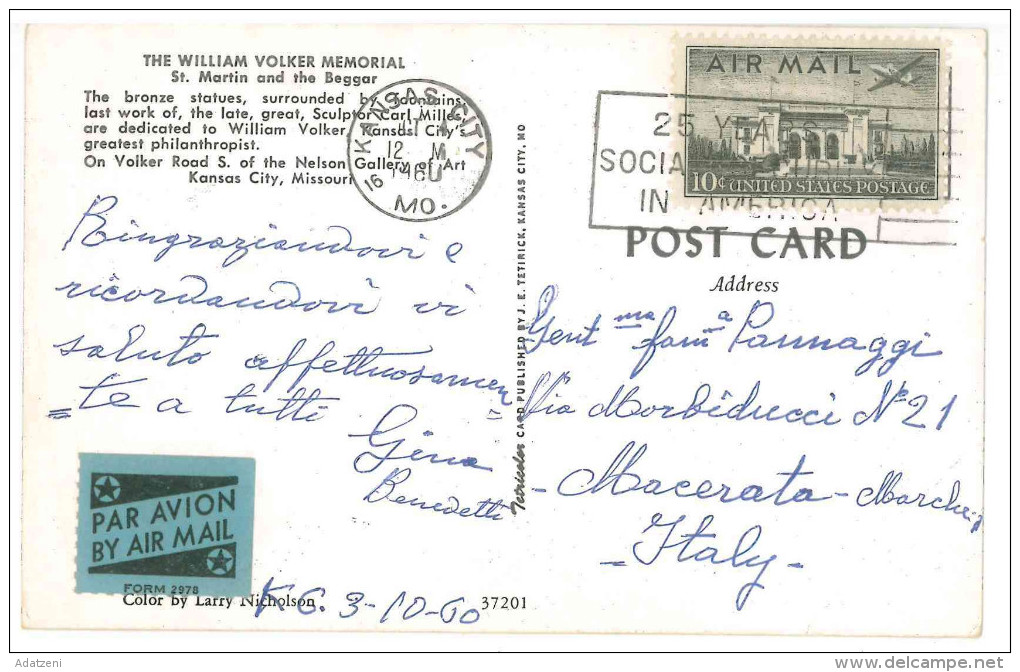 THE WILLIAM VOLKER MEMORIAL
St. Martin and the Beggar
The bronze statues, surrounded by fountains,
last work of, the late, great, Sculptor Carl Milles,
are dedicated to William Volker, Kansas City's
greatest philanthropist.
On Volker Road S. of the Nelson Gallery of Art
Kansas City, Missouri
KANSAS CITY
12 M
1960
16
MO.
25 YEARS
SOCIAL
IN AMERICA
AIR MAIL
10¢ UNITED STATES POSTAGE
POST CARD
Address
Ringraziandovi e
ricordandovi vi
saluto affettuosamen
=te a tutti =
Gina
Benedetti
Gent ma fam a Pannaggi
Via Morbiducci N° 21
- Macerata - Marche -
- Italy -
PAR AVION
BY AIR MAIL
FORM 2978
Color by Larry Nicholson
K C. 3-10-60
37201
Tetricolor CARD PUBLISHED BY J. E. TETIRICK, KANSAS CITY, MO
Adatzeni
www.delcampe.net